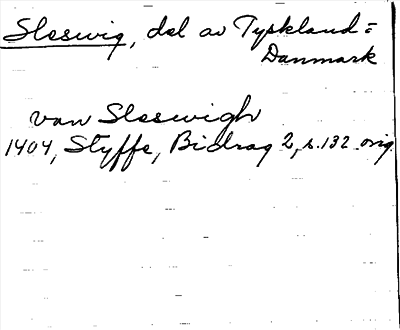 Sleswig, del av Tyskland =
Danmark
van Sleswigh
1404, Styffe, Bidrag 2, s. 132 orig